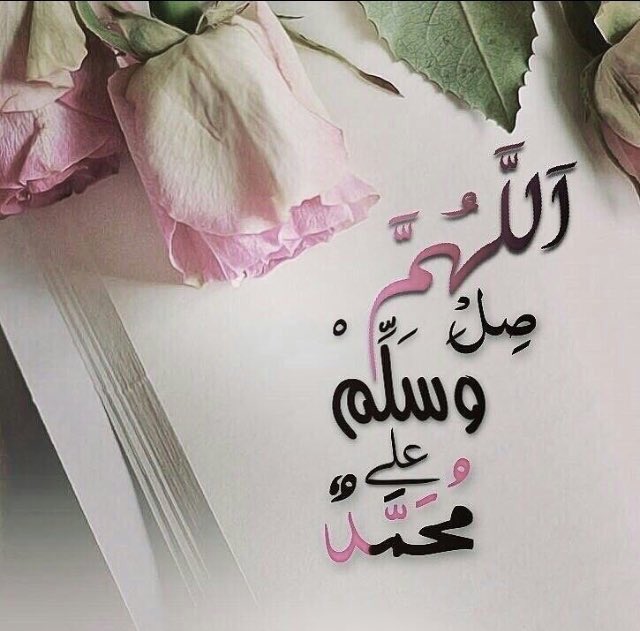 اَللَّهُمَّ
صِلْ
وَسَلِّمْ
علے
مُحَمَّدٌ